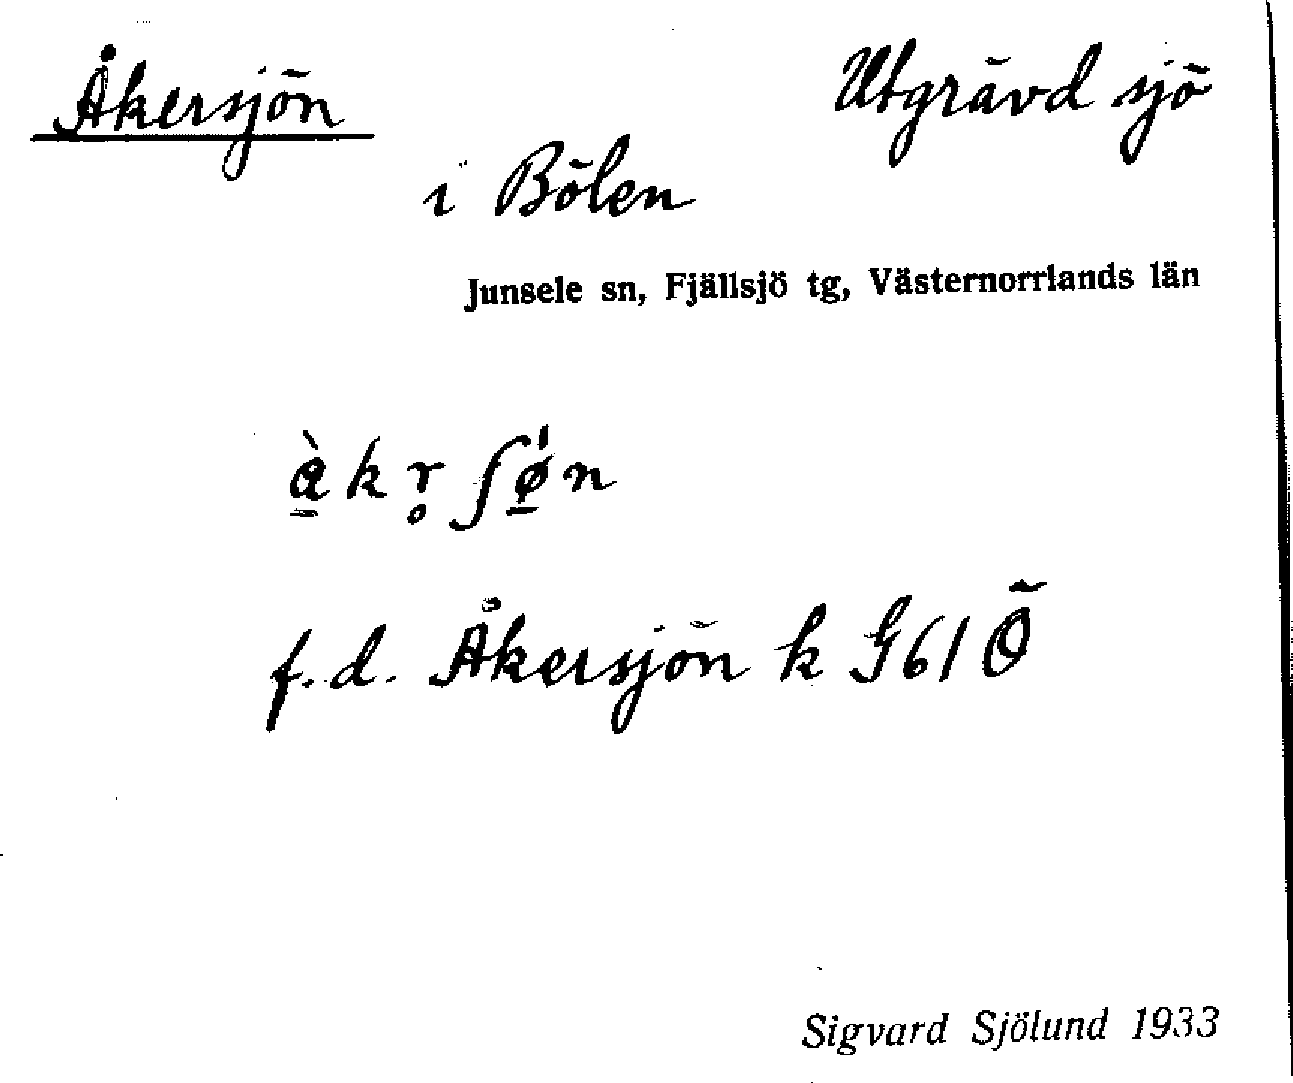 Åkersjön Utgrävd sjö
i Bölen
Junsele sn, Fjällsjö tg, Västernorrlands län
f.d. Åkersjön k G61 Ö
Sigvard Sjölund 1933